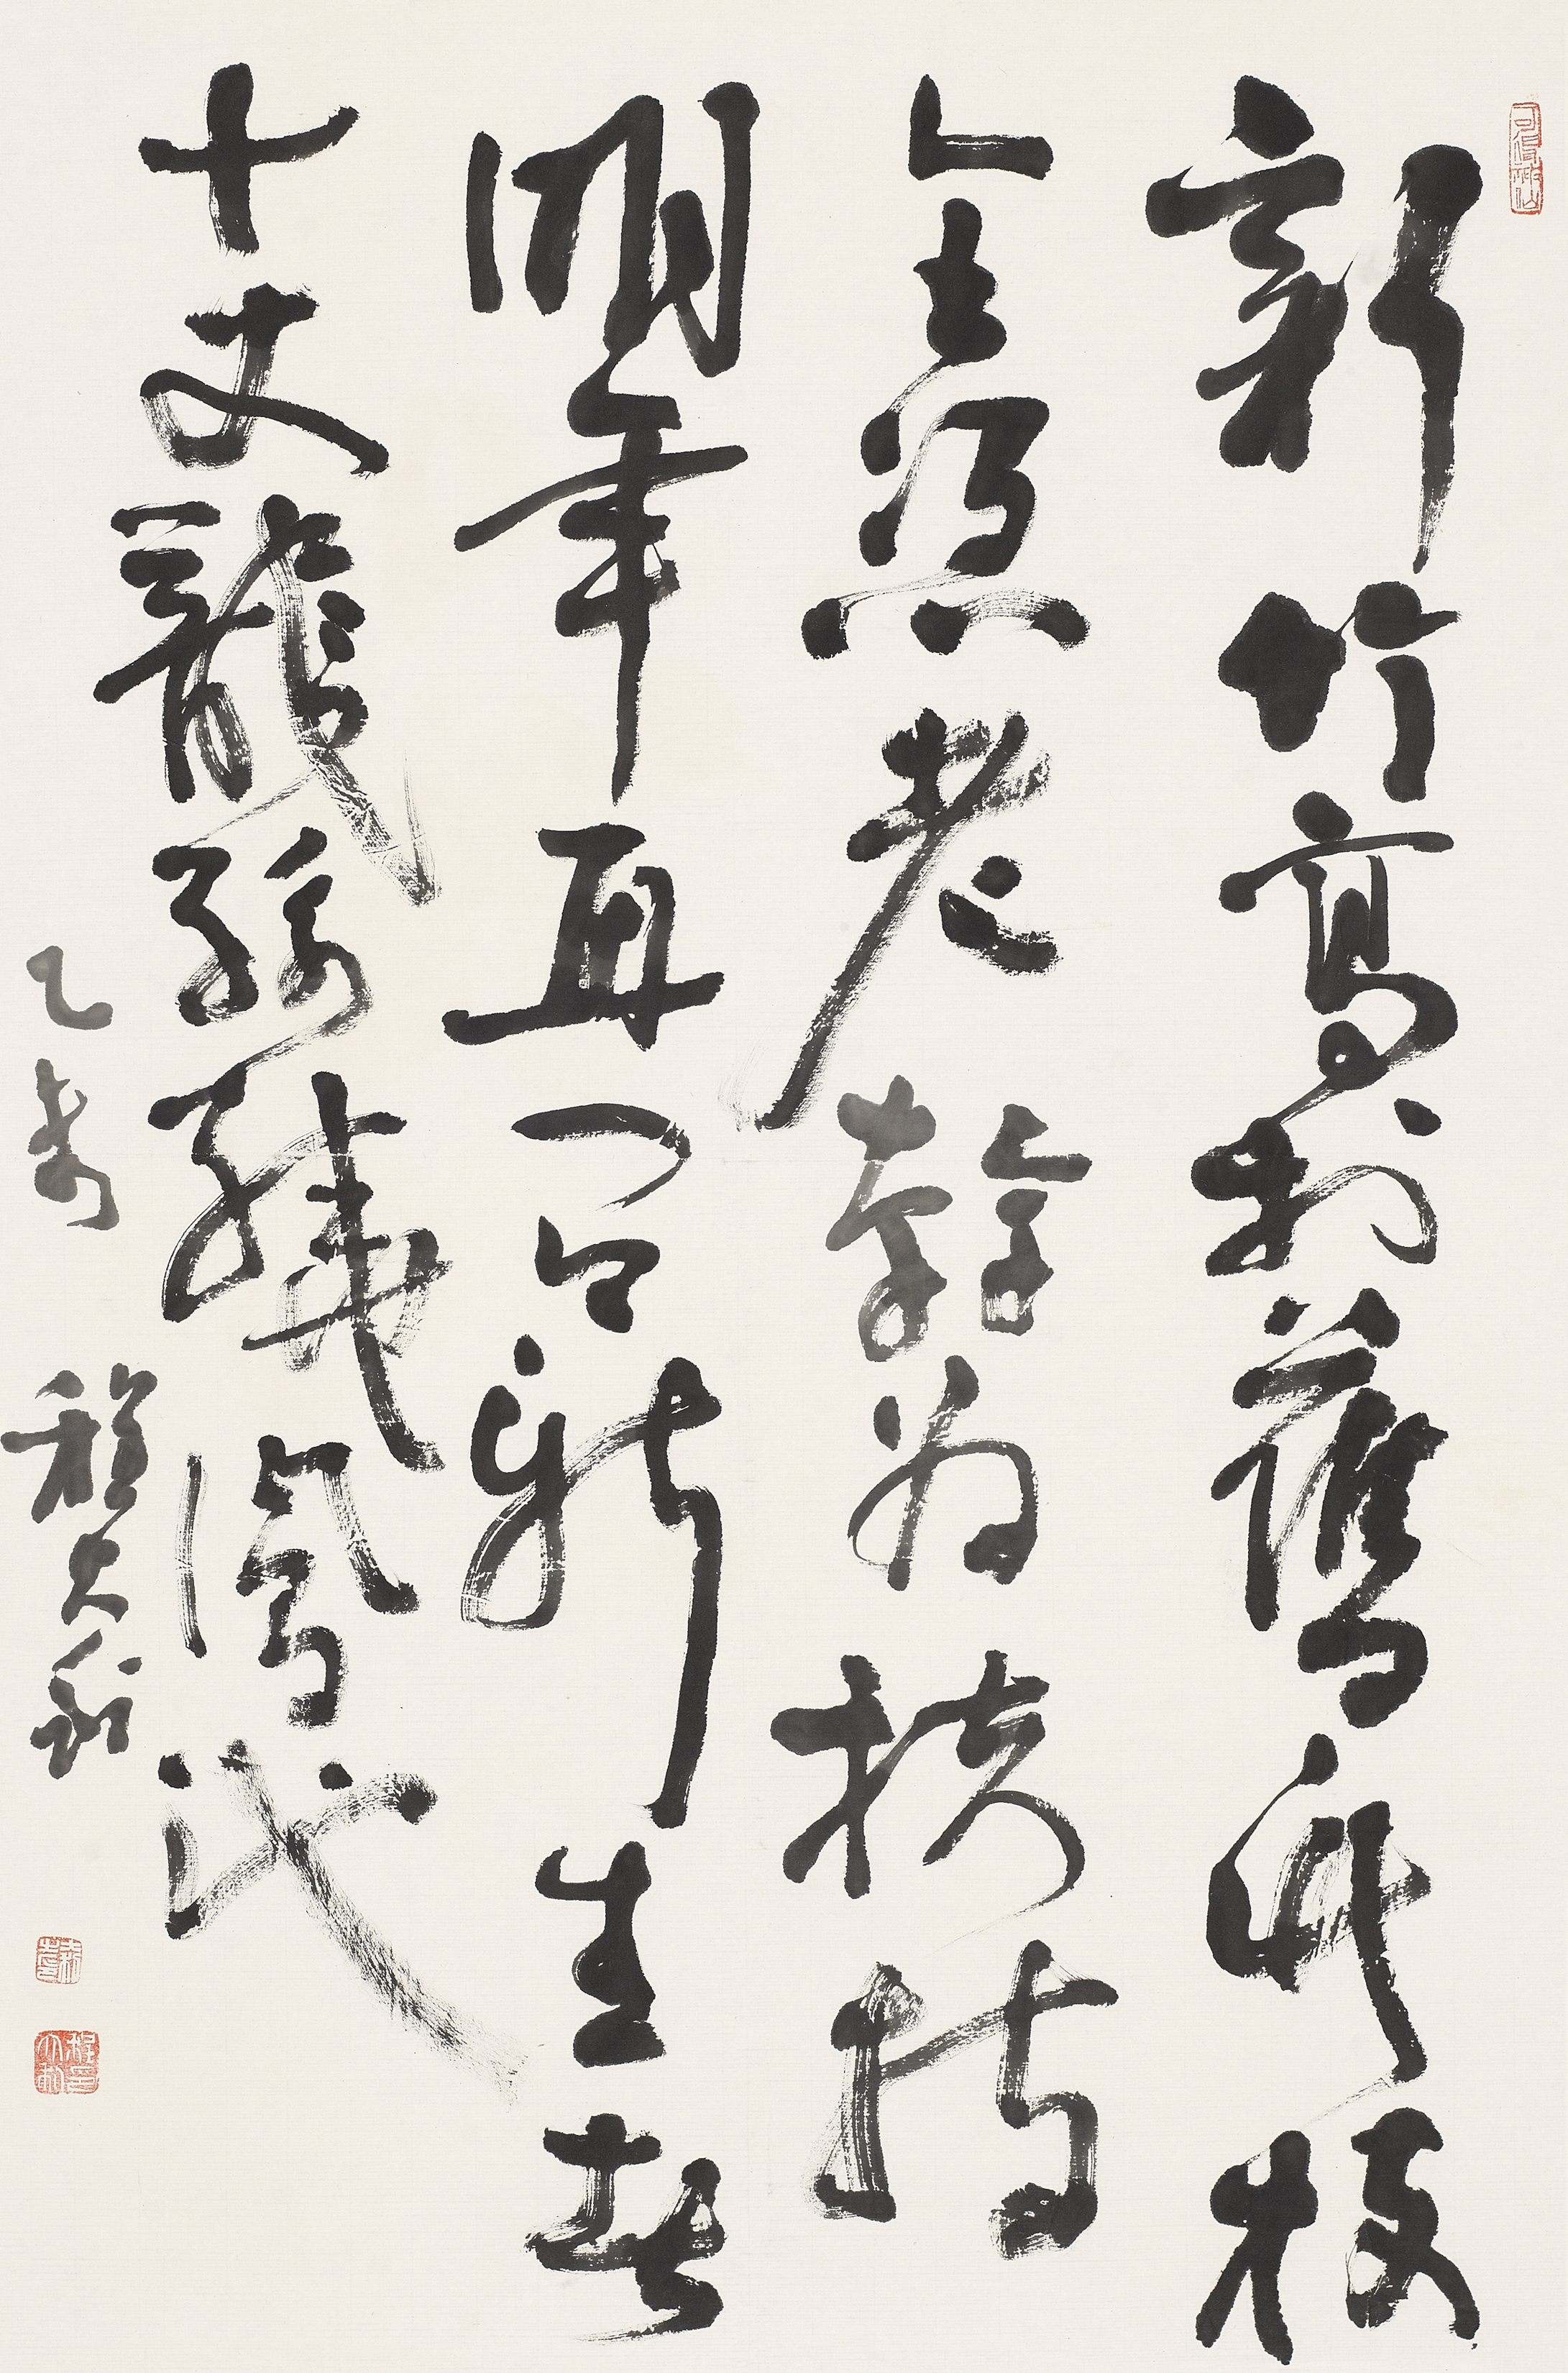 新竹高於舊竹枝
全憑老幹為扶持
明年再有新生者
十丈龍孫繞鳳池
乙 程大利